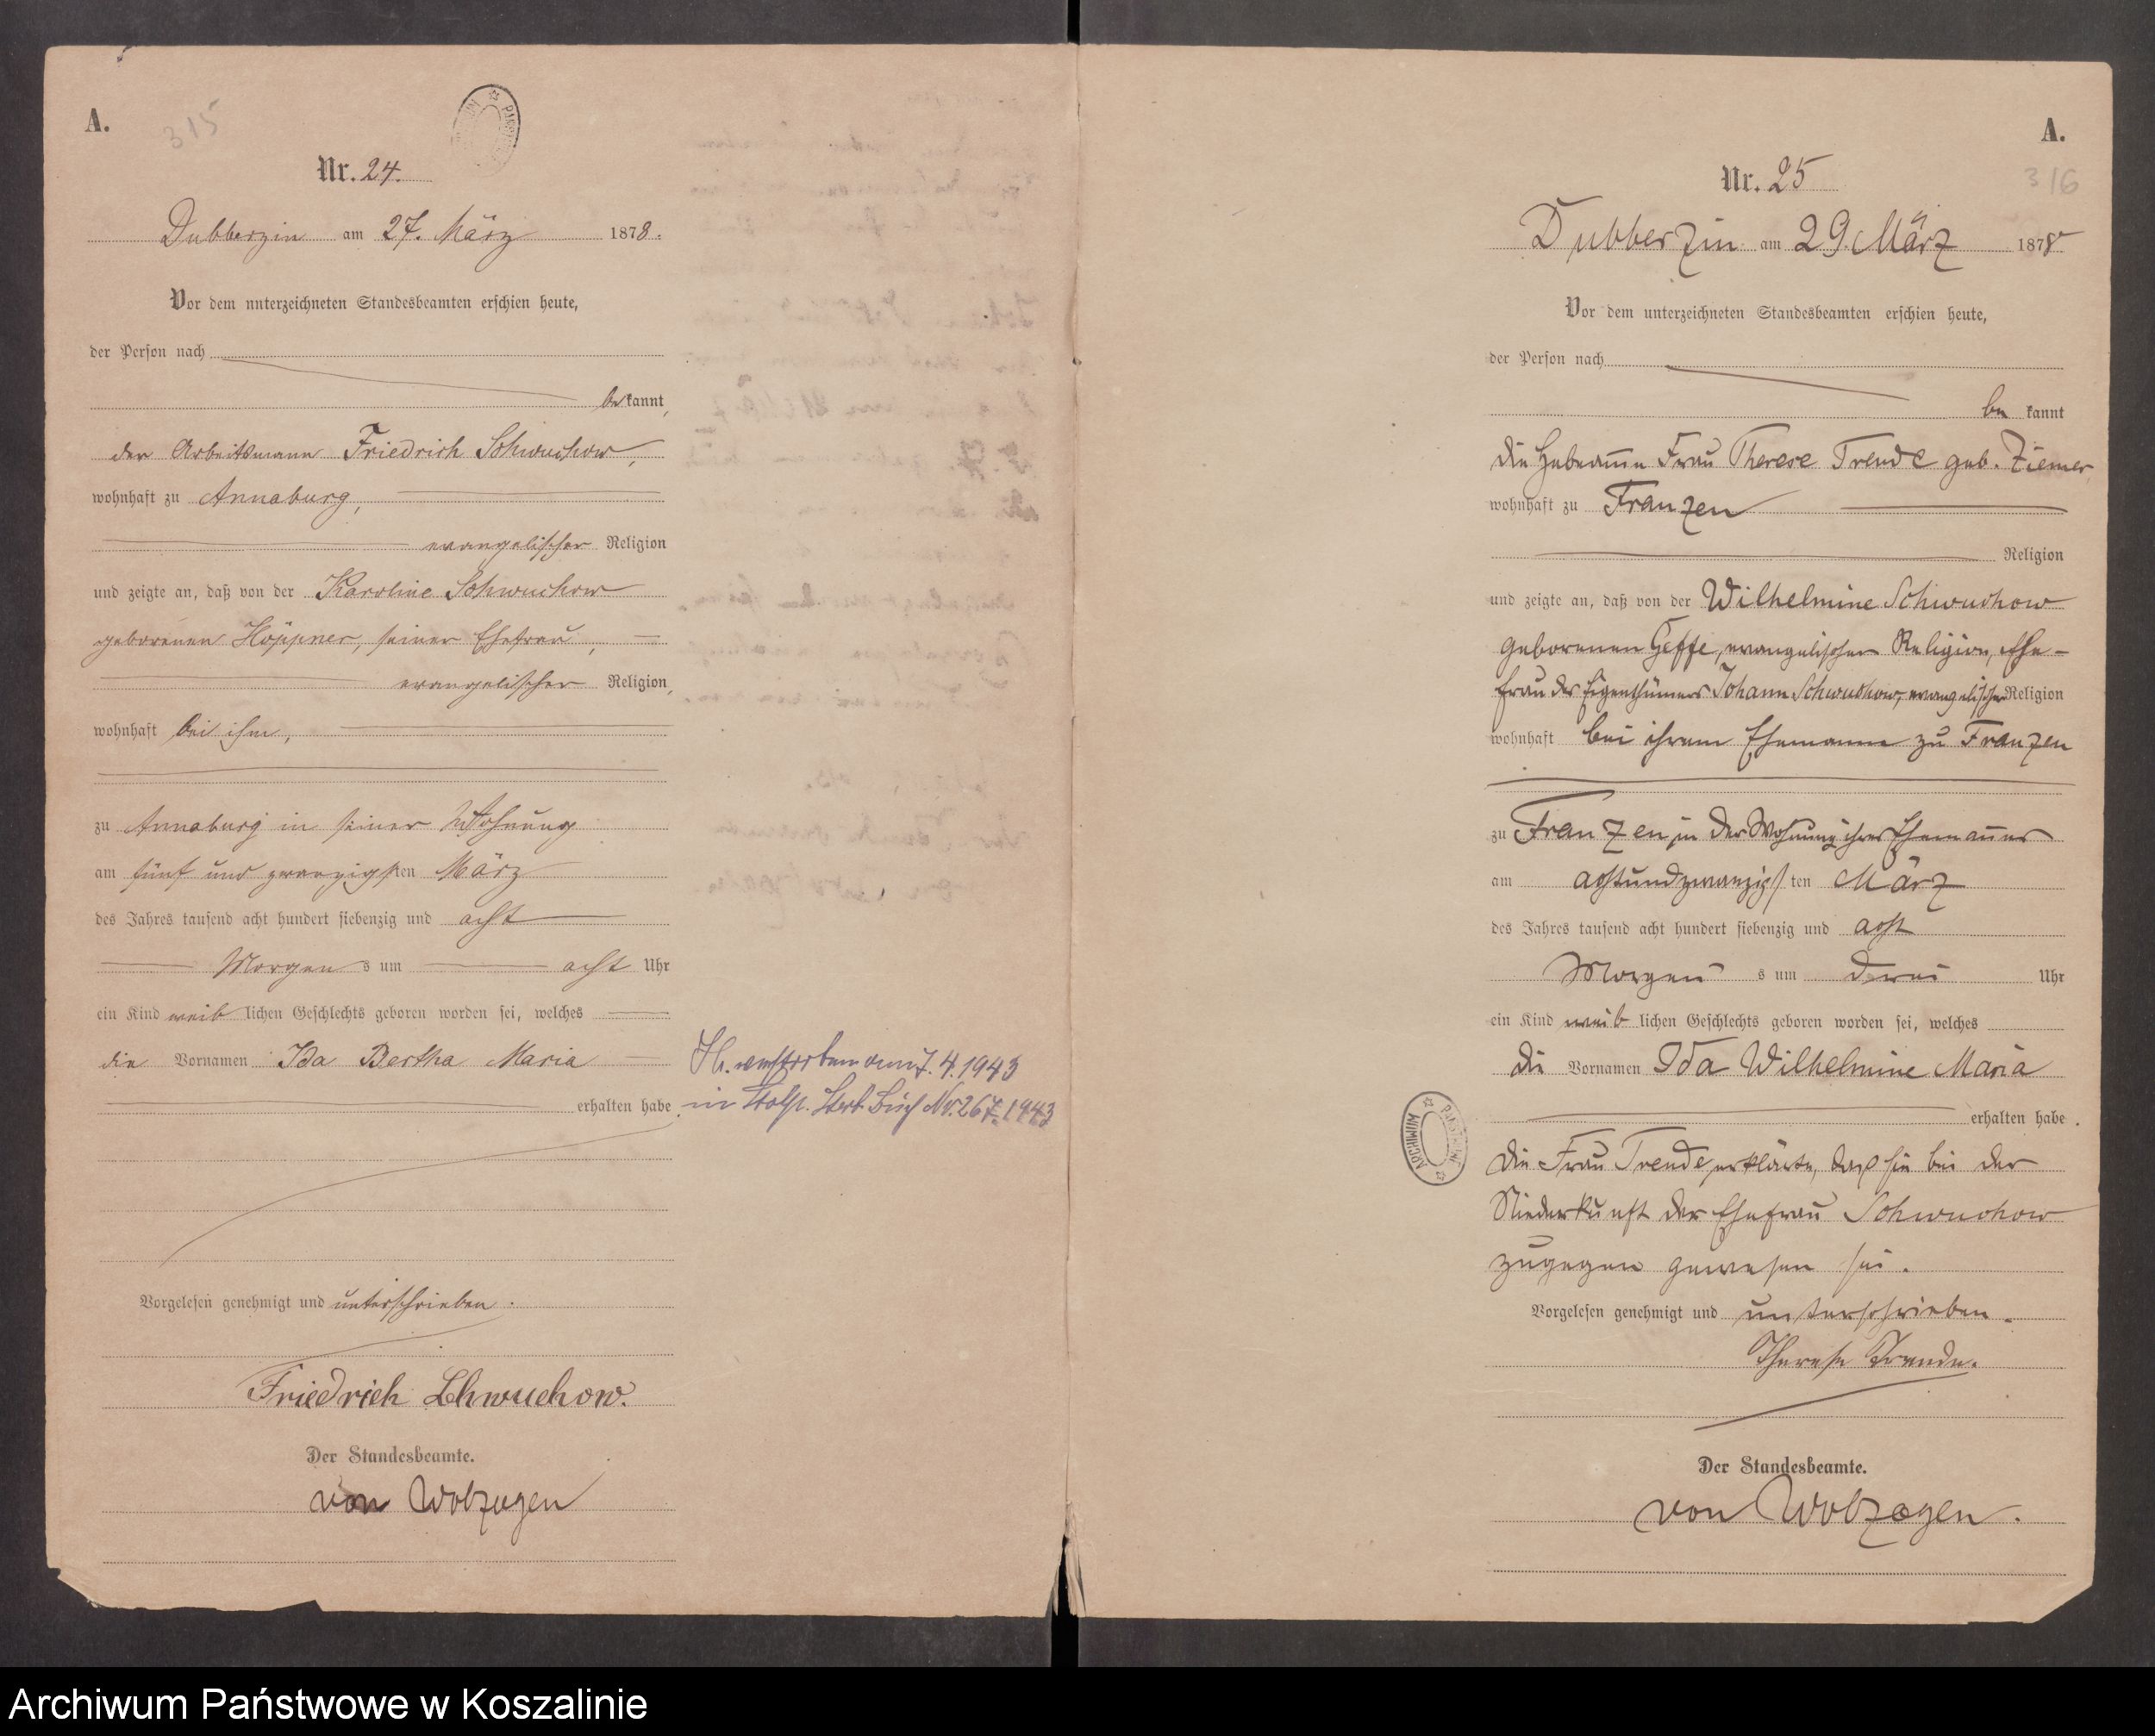 A.
315
Nr. 24.
Dubberzin am 27. März 1878.
Vor dem unterzeichneten Standesbeamten erschien heute,
der Person nach
bekannt,
der Arbeitsmann Friedrich Schwuchow,
wohnhaft zu Annaburg,
evangelischer Religion
und zeigte an, daß von der Karoline Schwuchow
geborenen Höppner, seiner Ehefrau,
evangelischer Religion,
wohnhaft bei ihm,
zu Annaburg in seiner Wohnung
am fünf und zwanzigsten März
des Jahres tausend acht hundert siebenzig und acht
Morgens um acht Uhr
ein Kind weiblichen Geschlechts geboren worden sei, welches
die Vornamen Ida Bertha Maria
erhalten habe.
verstorben am 7. 4. 1943
in Stolp. Sterb. Buch Nr. 267. 1943
Vorgelesen genehmigt und unterschrieben.
Friedrich Schwuchow.
Der Standesbeamte.
von Wolzogen
A.
316
Nr. 25
Dubberzin am 29. März 1878
Vor dem unterzeichneten Standesbeamten erschien heute,
der Person nach
be kannt
die Hebeamme Frau Therese Trende geb. Ziemer,
wohnhaft zu Franzen
Religion
und zeigte an, daß von der Wilhelmine Schwuchow
geborenen Geffe, evangelischer Religion, Ehe-
frau des Eigenthümers Johann Schwuchow, evangelischer Religion
wohnhaft bei ihrem Ehemanne zu Franzen
zu Franzen in der Wohnung ihres Ehemannes
am achtundzwanzigsten März
des Jahres tausend acht hundert siebenzig und acht
Morgens um drei Uhr
ein Kind weiblichen Geschlechts geboren worden sei, welches
die Vornamen Ida Wilhelmine Maria
erhalten habe.
ARCHIWUM PAŃSTWOWE
Die Frau Trende erklärte, daß sie bei der
Niederkunft der Ehefrau Schwuchow
zugegen gewesen sei.
Vorgelesen genehmigt und unterschrieben.
Therese Trende.
Der Standesbeamte.
von Wolzogen.
Archiwum Państwowe w Koszalinie